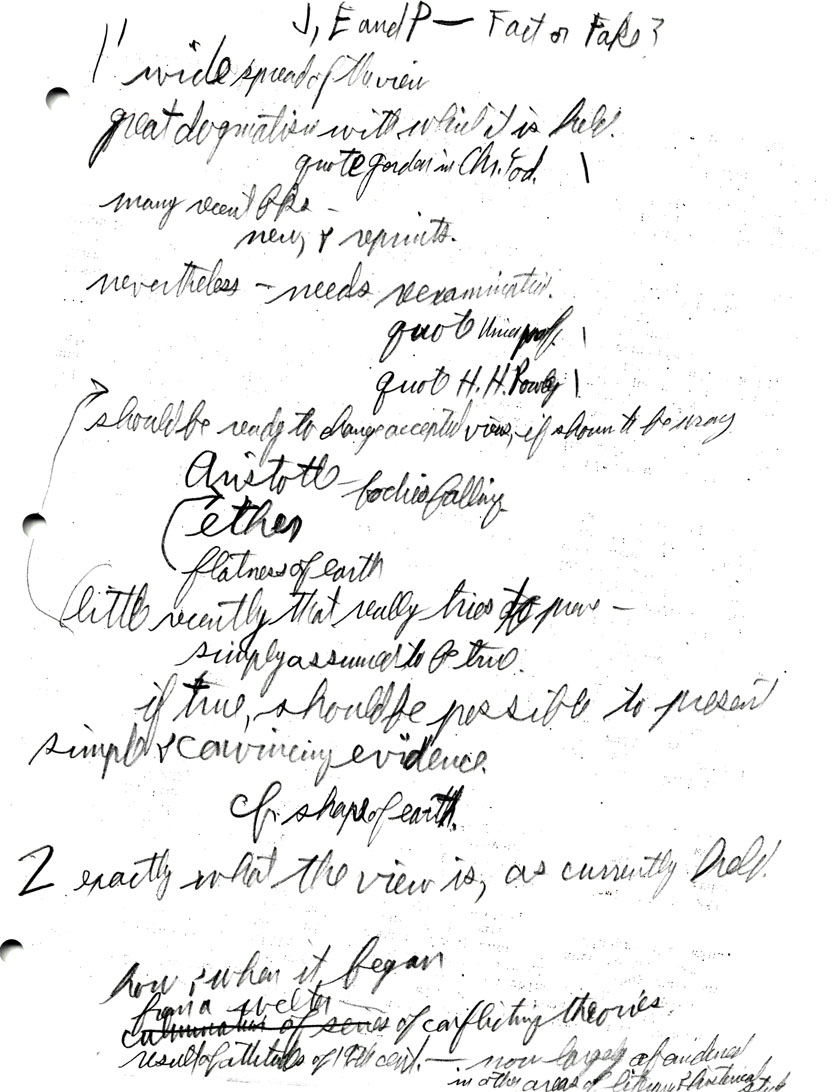 J, E and P — Fact or Fake?
1' wide spread of the view
great dogmatism with which it is held.
quote Gordon in Chr. Tod. \
many recent bks —
new, & reprints.
nevertheless — needs reexamination.
quot Univ prof. \
quot H. H. \
should be ready to change accepted view, if shown to be wrong
Aristotl — bodies falling
ether
flatness of earth
little recently that really tries to prove —
simply assumed to be true.
if true, should be possible to present
simple & convincing evidence.
Cf. shape of earth.
2 exactly what the view is, as currently held.
how & when it began
from a welter
culmination of series of conflicting theories
result of attitudes of 19th cent. — now largely abandoned
in other areas of literary & historical study